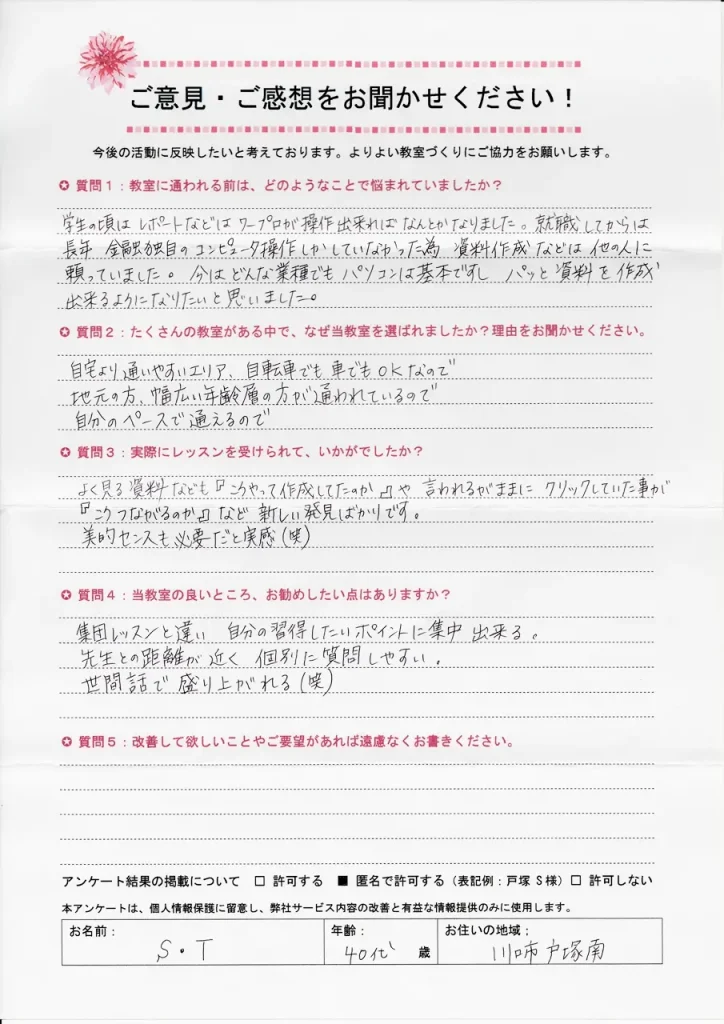 ご意見・ご感想をお聞かせください！
今後の活動に反映したいと考えております。よりよい教室づくりにご協力をお願いします。
✪ 質問１：教室に通われる前は、どのようなことで悩まれていましたか？
学生の頃は レポートなどは ワープロが操作出来ればなんとかなりました。就職してからは
長年 金融独自の コンピュータ操作しかしていなかった為 資料作成などは 他の人に
頼っていました。今はどんな業種でも パソコンは基本ですし パッと資料を作成
出来るようになりたいと思いました。
✪ 質問２：たくさんの教室がある中で、なぜ当教室を選ばれましたか？理由をお聞かせください。
自宅より通いやすいエリア、自転車でも車でもOKなので
地元の方、幅広い年齢層の方が通われているので
自分のペースで通えるので
✪ 質問３：実際にレッスンを受けられて、いかがでしたか？
よく見る資料なども『こうやって作成してたのか』や 言われるがままに クリックしていた事が
『こうつながるのか』など 新しい発見ばかりです。
美的センスも必要だと実感(笑)
✪ 質問４：当教室の良いところ、お勧めしたい点はありますか？
集団レッスンと違い 自分の習得したいポイントに集中 出来る。
先生との距離が近く 個別に質問しやすい。
世間話で盛り上がれる(笑)
✪ 質問５：改善して欲しいことやご要望があれば遠慮なくお書きください。
アンケート結果の掲載について □ 許可する ■ 匿名で許可する（表記例：戸塚 S 様）□ 許可しない
本アンケートは、個人情報保護に留意し、弊社サービス内容の改善と有益な情報提供のみに使用します。
お名前： 年齢： お住いの地域：
S・T 40代 歳 川口市戸塚南